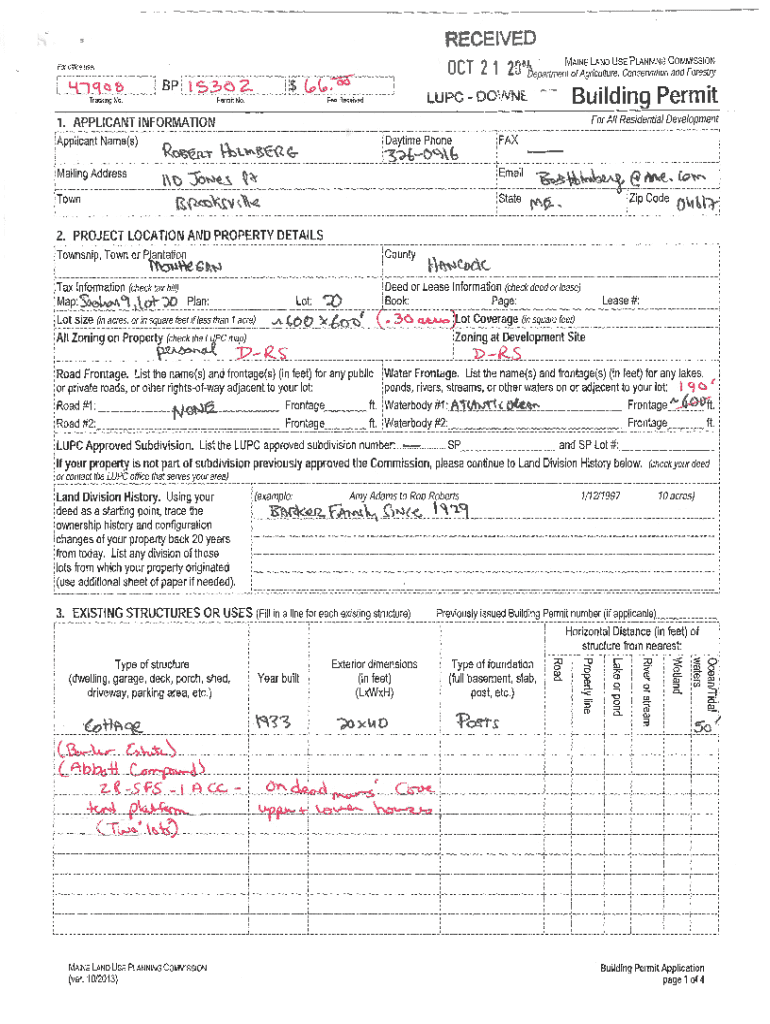 RECEIVED
OCT 21 20
LUPC - DOWNE
For office use:
47908 BP 15302 $ 66.00
Tracking No. Permit No. Fee Received
MAINE LAND USE PLANNING COMMISSION
Department of Agriculture, Conservation and Forestry
Building Permit
For All Residential Development
1. APPLICANT INFORMATION
Applicant Name(s) ROBERT HOLMBERG Daytime Phone 326-0916 FAX
Mailing Address 110 JONES PT Email
Town BROOKSVILLE State ME. Zip Code 04617
2. PROJECT LOCATION AND PROPERTY DETAILS
Township, Town or Plantation MONHEGAN County HANCOCK
Tax Information (check tax bill) Deed or Lease Information (check deed or lease)
Map: Section 9, Lot 20 Plan: Lot: 20 Book: Page: Lease #:
Lot size (in acres, or in square feet if less than 1 acre) ~600 x 600' (.30 acres) Lot Coverage (in square feet)
All Zoning on Property (check the LUPC map) personal D-RS Zoning at Development Site D-RS
Road Frontage. List the name(s) and frontage(s) (in feet) for any public Water Frontage. List the name(s) and frontage(s) (in feet) for any lakes,
or private roads, or other rights-of-way adjacent to your lot: ponds, rivers, streams, or other waters on or adjacent to your lot: 190'
Road #1: NONE Frontage ft. Waterbody #1: ATLANTIC OCEAN Frontage ~600' ft.
Road #2: Frontage ft. Waterbody #2: Frontage ft.
LUPC Approved Subdivision. List the LUPC approved subdivision number: SP and SP Lot #:
If your property is not part of subdivision previously approved the Commission, please continue to Land Division History below. (check your deed
or contact the LUPC office that serves your area)
Land Division History. Using your (example: Amy Adams to Rob Roberts 1/12/1997 10 acres)
deed as a starting point, trace the BARKER FAMILY SINCE 1929
ownership history and configuration
changes of your property back 20 years
from today. List any division of those
lots from which your property originated
(use additional sheet of paper if needed).
3. EXISTING STRUCTURES OR USES (Fill in a line for each existing structure) Previously issued Building Permit number (if applicable)
Horizontal Distance (in feet) of
structure from nearest:
Type of structure
(dwelling, garage, deck, porch, shed,
driveway, parking area, etc.)
Year built
Exterior dimensions
(in feet)
(LxWxH)
Type of foundation
(full basement, slab,
post, etc.)
Road
Property line
Lake or pond
River or stream
Wetland
Ocean/Tidal
waters
COTTAGE 1933 20x40 POSTS 50'
(Barker Estate)
(Abbott Compound)
2R-SFS-1 ACC - on dead mans' Cove
tent platform upper + lower houses
(Two lots?)
MAINE LAND USE PLANNING COMMISSION
(ver. 10/2013)
Building Permit Application
page 1 of 4